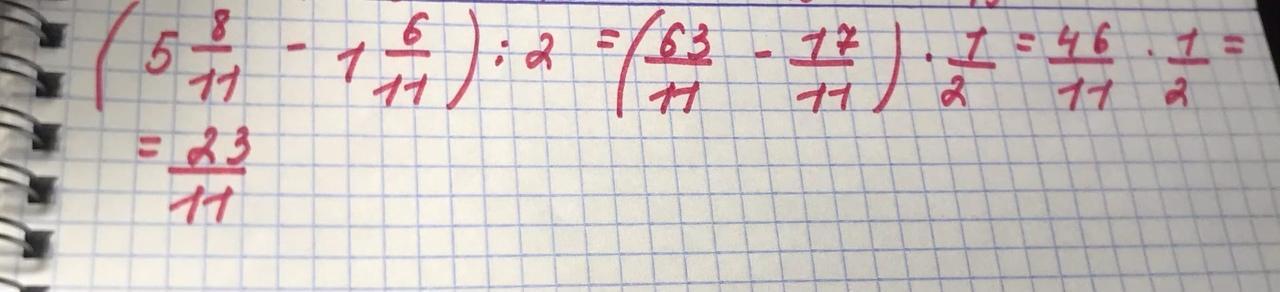 (5 8/11 - 1 6/11) : 2 = (63/11 - 17/11) · 1/2 = 46/11 · 1/2 =
= 23/11